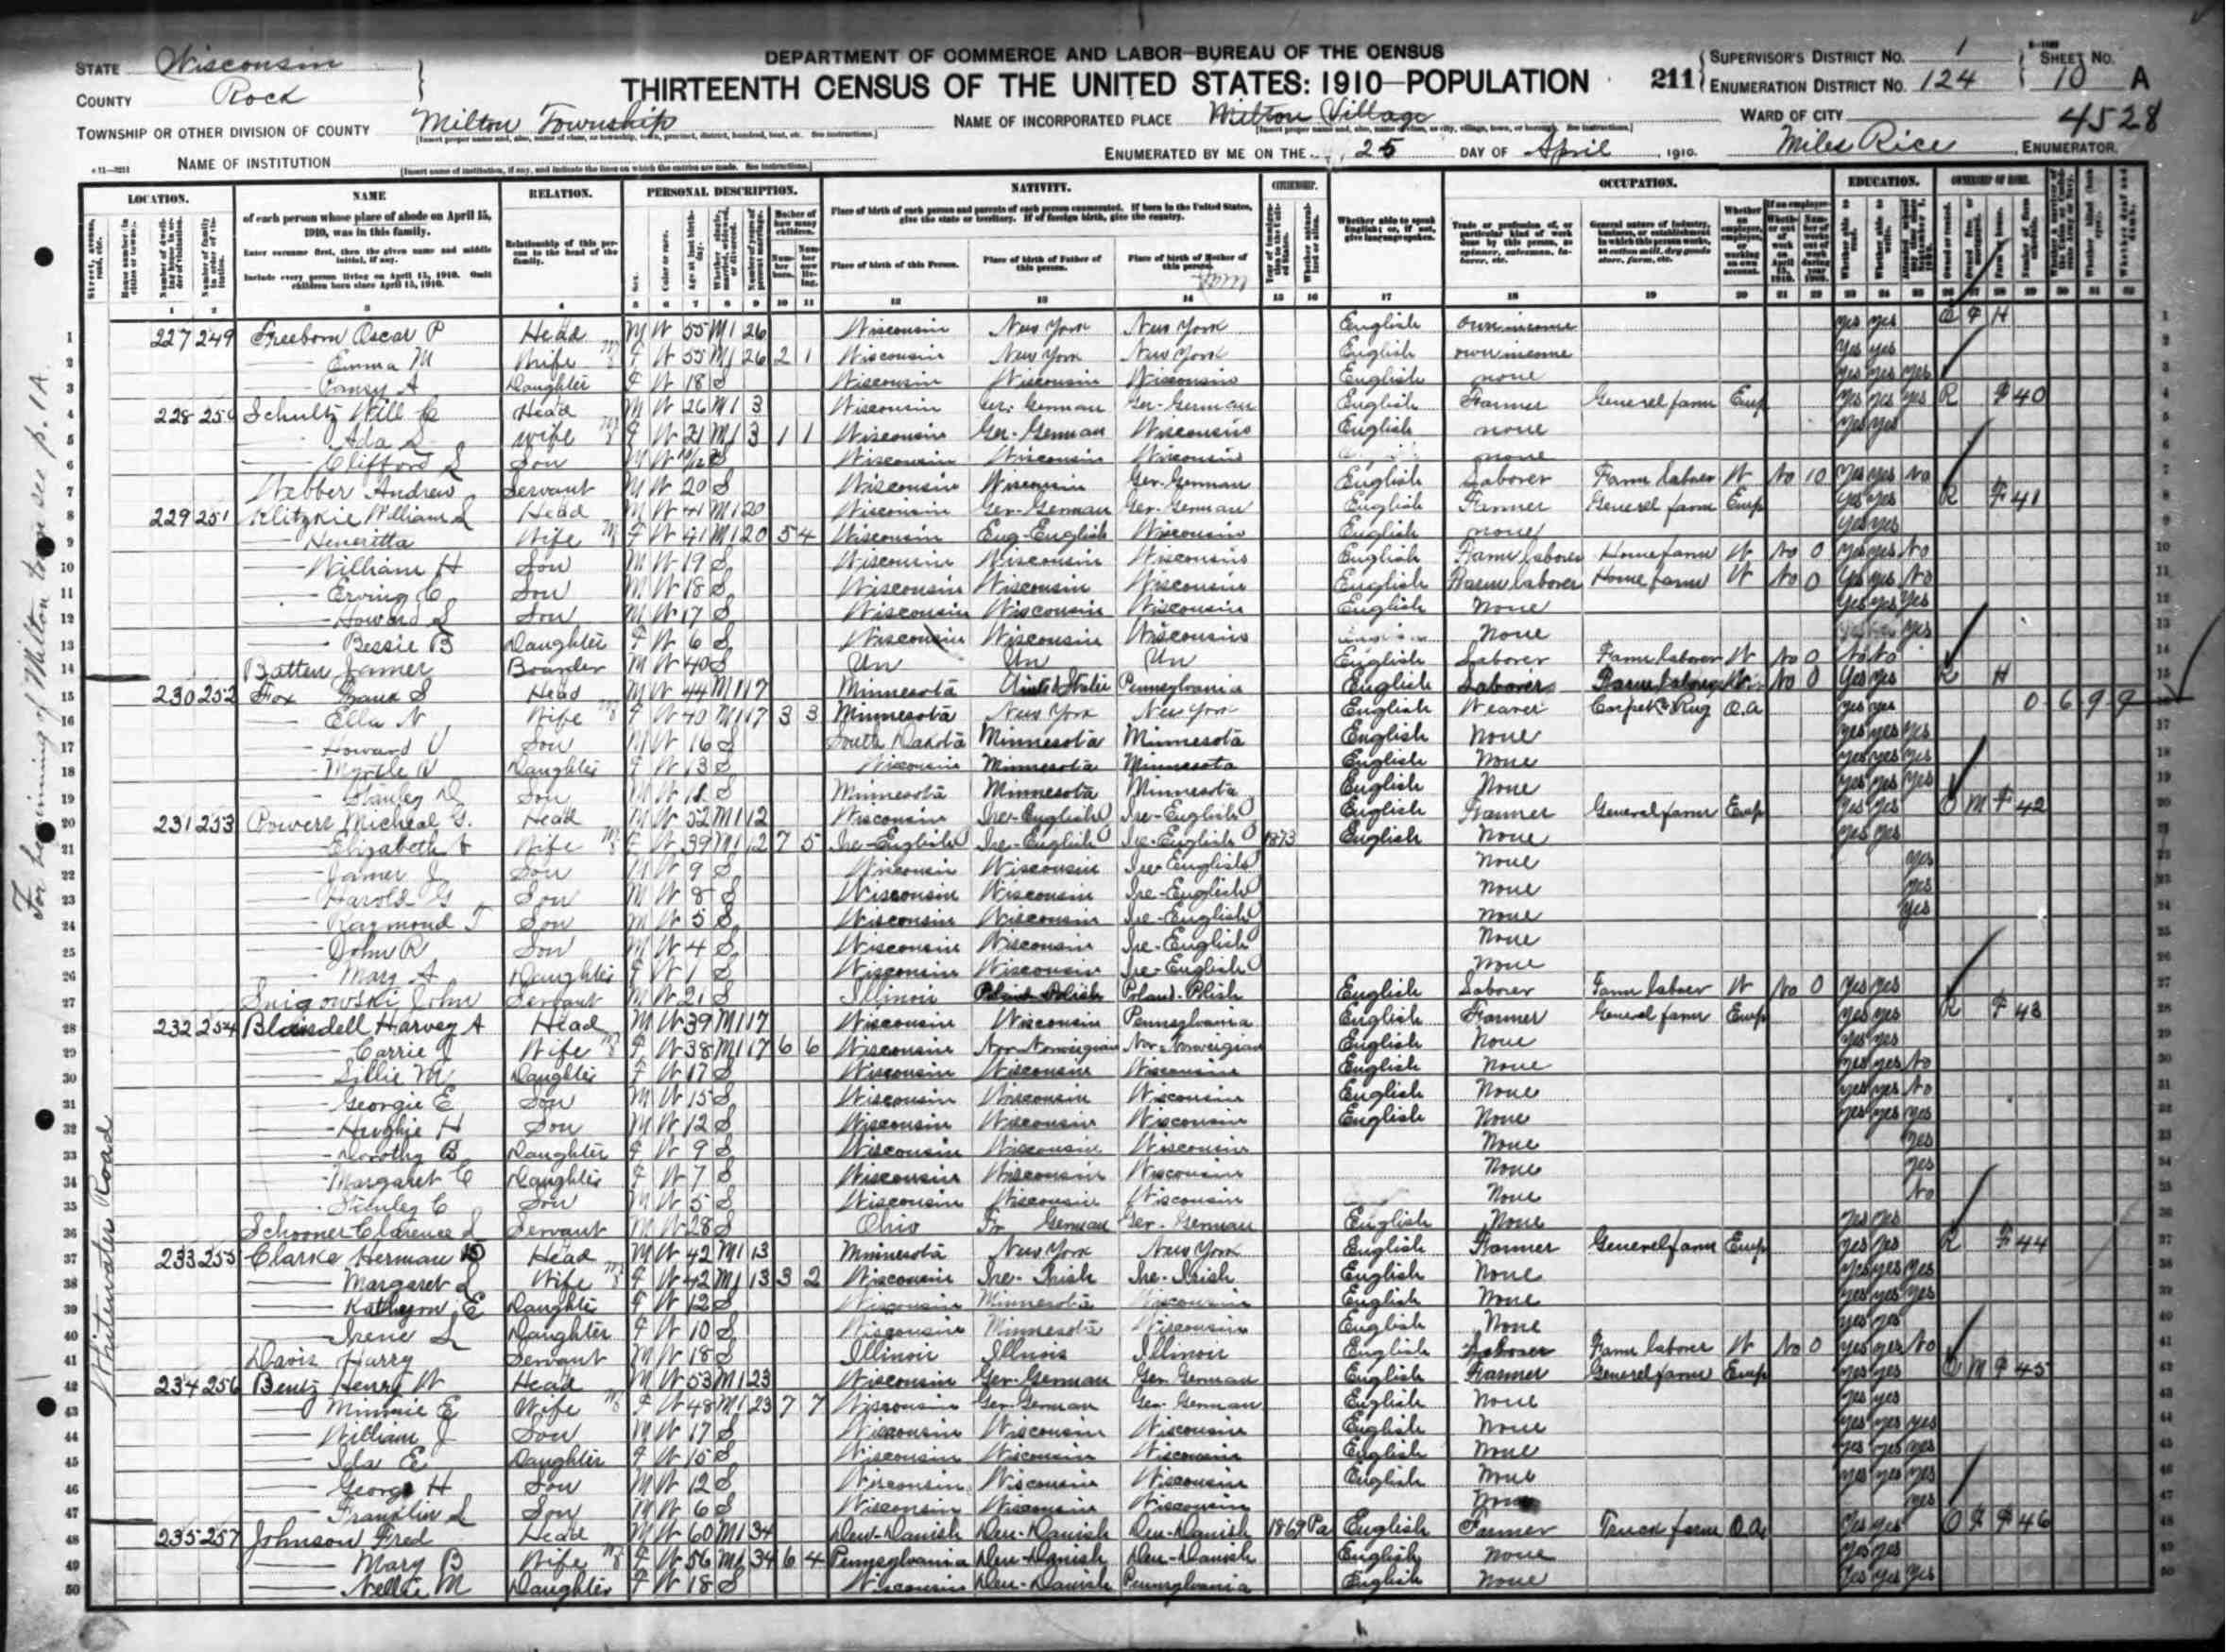 DEPARTMENT OF COMMERCE AND LABOR—BUREAU OF THE CENSUS
THIRTEENTH CENSUS OF THE UNITED STATES: 1910—POPULATION
STATE Wisconsin
COUNTY Rock
TOWNSHIP OR OTHER DIVISION OF COUNTY Milton Township
NAME OF INSTITUTION
NAME OF INCORPORATED PLACE Milton Village
ENUMERATED BY ME ON THE 25 DAY OF April, 1910.
211
SUPERVISOR'S DISTRICT NO. 1
ENUMERATION DISTRICT NO. 124
SHEET NO. 10 A
WARD OF CITY
4528
Miles Rice, ENUMERATOR.
LOCATION. NAME RELATION. PERSONAL DESCRIPTION. NATIVITY. CITIZENSHIP. OCCUPATION. EDUCATION. OWNERSHIP OF HOME.
of each person whose place of abode on April 15, 1910, was in this family.
Enter surname first, then the given name and middle initial, if any.
Include every person living on April 15, 1910. Omit children born since April 15, 1910.
Relationship of this person to the head of the family.
Place of birth of this Person. Place of birth of Father of this person. Place of birth of Mother of this person.
For beginning of Milton town see p. 1A.
Whitewater Road
1 227 249 Freeborn Oscar P Head M W 55 M1 26 Wisconsin New York New York English own income yes yes O F H
2 Emma M Wife F W 55 M1 26 2 1 Wisconsin New York New York English own income yes yes
3 Pansy A Daughter F W 18 S Wisconsin Wisconsin Wisconsin English none yes yes yes
4 228 250 Schultz Will C Head M W 26 M1 3 Wisconsin Ger-German Ger-German English Farmer General farm Emp yes yes yes R F 40
5 Ada L Wife F W 21 M1 3 1 1 Wisconsin Ger-German Wisconsin English none yes yes
6 Clifford L Son M W S Wisconsin Wisconsin Wisconsin none
7 Webber Andrew Servant M W 20 S Wisconsin Wisconsin Ger-German English Laborer Farm laborer W No 10 yes yes No
8 229 251 Klitzkie William L Head M W 41 M1 20 Wisconsin Ger-German Ger-German English Farmer General farm Emp yes yes R F 41
9 Heneretta Wife F W 41 M1 20 5 4 Wisconsin Eng-English Wisconsin English none yes yes
10 William H Son M W 19 S Wisconsin Wisconsin Wisconsin English Farm laborer Home farm W No 0 yes yes No
11 Erving C Son M W 18 S Wisconsin Wisconsin Wisconsin English Farm laborer Home farm W No 0 yes yes No
12 Howard S Son M W 17 S Wisconsin Wisconsin Wisconsin English None yes yes yes
13 Bessie B Daughter F W 6 S Wisconsin Wisconsin Wisconsin None yes
14 Batten James Boarder M W 40 S Un Un Un English Laborer Farm laborer W No 0 No No
15 230 252 Fox Frank S Head M W 44 M1 17 Minnesota United States Pennsylvania English Laborer Farm laborer W No 0 yes yes R H
16 Ella N Wife F W 40 M1 17 3 3 Minnesota New York New York English Weaver Carpet & Rug O.A yes yes 0 6 9 9
17 Howard V Son M W 16 S South Dakota Minnesota Minnesota English None yes yes yes
18 Myrtle V Daughter F W 13 S Wisconsin Minnesota Minnesota English None yes yes yes
19 Stanley D Son M W S Minnesota Minnesota Minnesota English None yes yes yes
20 231 253 Powers Micheal G. Head M W 52 M1 12 Wisconsin Ire-English Ire-English English Farmer General farm Emp yes yes O M F 42
21 Elizabeth Wife F W 39 M1 12 7 5 Ire-English Ire-English Ire-English 1873 English None yes yes
22 James J Son M W 9 S Wisconsin Wisconsin Ire-English None yes
23 Harold G Son M W 8 S Wisconsin Wisconsin Ire-English None yes
24 Raymond T Son M W 5 S Wisconsin Wisconsin Ire-English None yes
25 John R Son M W 4 S Wisconsin Wisconsin Ire-English None
26 Mary A Daughter F W 1 S Wisconsin Wisconsin Ire-English None
27 Snigowski John Servant M W 21 S Illinois Poland Polish Poland-Polish English Laborer Farm laborer W No 0 yes yes
28 232 254 Blaisdell Harvey A Head M W 39 M1 17 Wisconsin Wisconsin Pennsylvania English Farmer General farm Emp yes yes R F 43
29 Carrie J Wife F W 38 M1 17 6 6 Wisconsin Nor-Norweigian Nor-Norweigian English None yes yes
30 Lillie M Daughter F W 17 S Wisconsin Wisconsin Wisconsin English None yes yes No
31 Georgie E Son M W 15 S Wisconsin Wisconsin Wisconsin English None yes yes No
32 Hughie H Son M W 12 S Wisconsin Wisconsin Wisconsin English None yes yes yes
33 Dorothy B Daughter F W 9 S Wisconsin Wisconsin Wisconsin None yes
34 Margaret C Daughter F W 7 S Wisconsin Wisconsin Wisconsin None yes
35 Stanley C Son M W 5 S Wisconsin Wisconsin Wisconsin None No
36 Schooner Clarence L Servant M W 28 S Ohio Fr German Ger-German English None yes yes
37 233 255 Clarke Herman D Head M W 42 M1 13 Minnesota New York New York English Farmer General farm Emp yes yes R F 44
38 Margaret L Wife F W 42 M1 13 3 2 Wisconsin Ire-Irish Ire-Irish English None yes yes yes
39 Kathyrn E Daughter F W 12 S Wisconsin Minnesota Wisconsin English None yes yes yes
40 Irene L Daughter F W 10 S Wisconsin Minnesota Wisconsin English None yes yes
41 Davis Harry Servant M W 18 S Illinois Illinois Illinois English Laborer Farm laborer W No 0 yes yes No
42 234 256 Bentz Henry W Head M W 53 M1 23 Wisconsin Ger-German Ger-German English Farmer General farm Emp yes yes O M F 45
43 Minnie E Wife F W 48 M1 23 7 7 Wisconsin Ger-German Ger-German English None yes yes
44 William J Son M W 17 S Wisconsin Wisconsin Wisconsin English None yes yes yes
45 Ida E Daughter F W 15 S Wisconsin Wisconsin Wisconsin English None yes yes yes
46 George H Son M W 12 S Wisconsin Wisconsin Wisconsin English None yes yes yes
47 Franklin L Son M W 6 S Wisconsin Wisconsin Wisconsin None yes
48 235 257 Johnson Fred Head M W 60 M1 34 Den-Danish Den-Danish Den-Danish 1869 Pa English Farmer Truck farm O.A. yes yes O F F 46
49 Mary B Wife F W 56 M1 34 6 4 Pennsylvania Den-Danish Den-Danish English None yes yes
50 Nellie M Daughter F W 18 S Wisconsin Den-Danish Pennsylvania English None yes yes yes